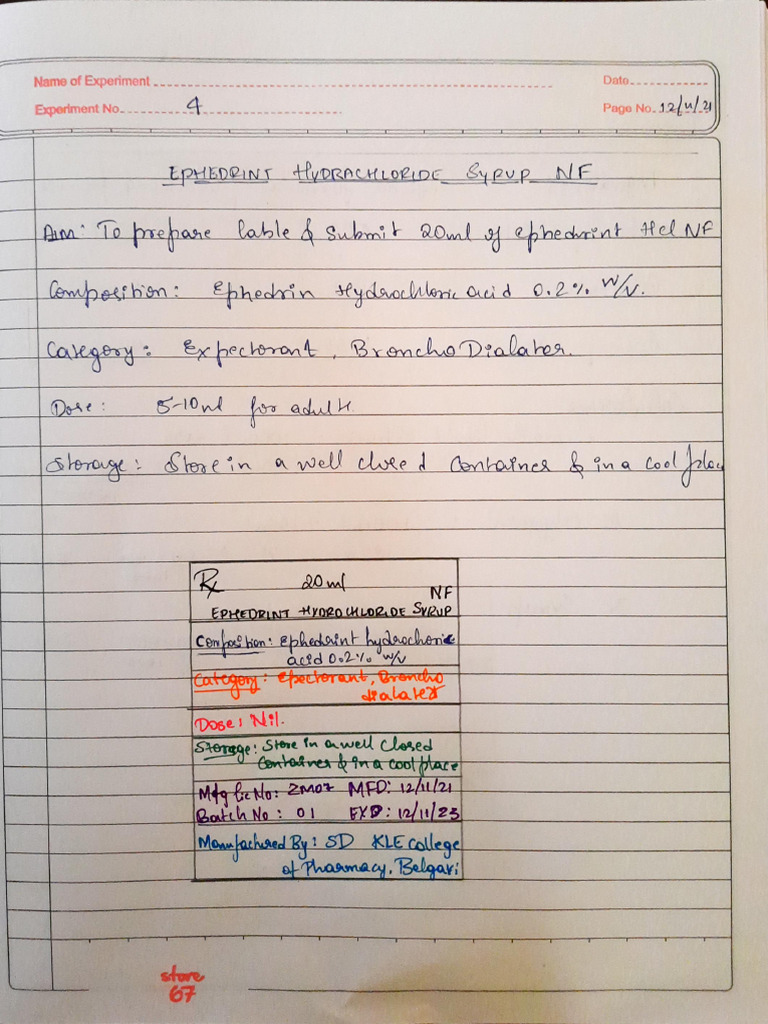 Name of Experiment
Date
Experiment No. 4
Page No. 12/11/21
EPHEDRINT HYDRACHLORIDE SYRUP NF
Aim: To prepare lable & Submit 20ml of ephedrint Hcl NF
Composition: Ephedrin Hydrochloric acid 0.2% W/V.
Category: Expectorant, BronchoDialater.
Dose: 5-10ml for adult.
Storage: Store in a well closed container & in a cool place
Rx 20ml
NF
EPHEDRINT HYDROCHLORIDE SYRUP
Composition: Ephedrint hydrochoric
acid 0.2% w/v
Category: Epectorant, Broncho
dialater
Dose: Nil.
Storage: Store in a well closed
Container & in a cool place
Mfg lic No: ZM07 MFD: 12/11/21
Batch No: 01 EXP: 12/11/23
Manufachured By: SD KLE college
of Pharmacy, Belgavi
store
67